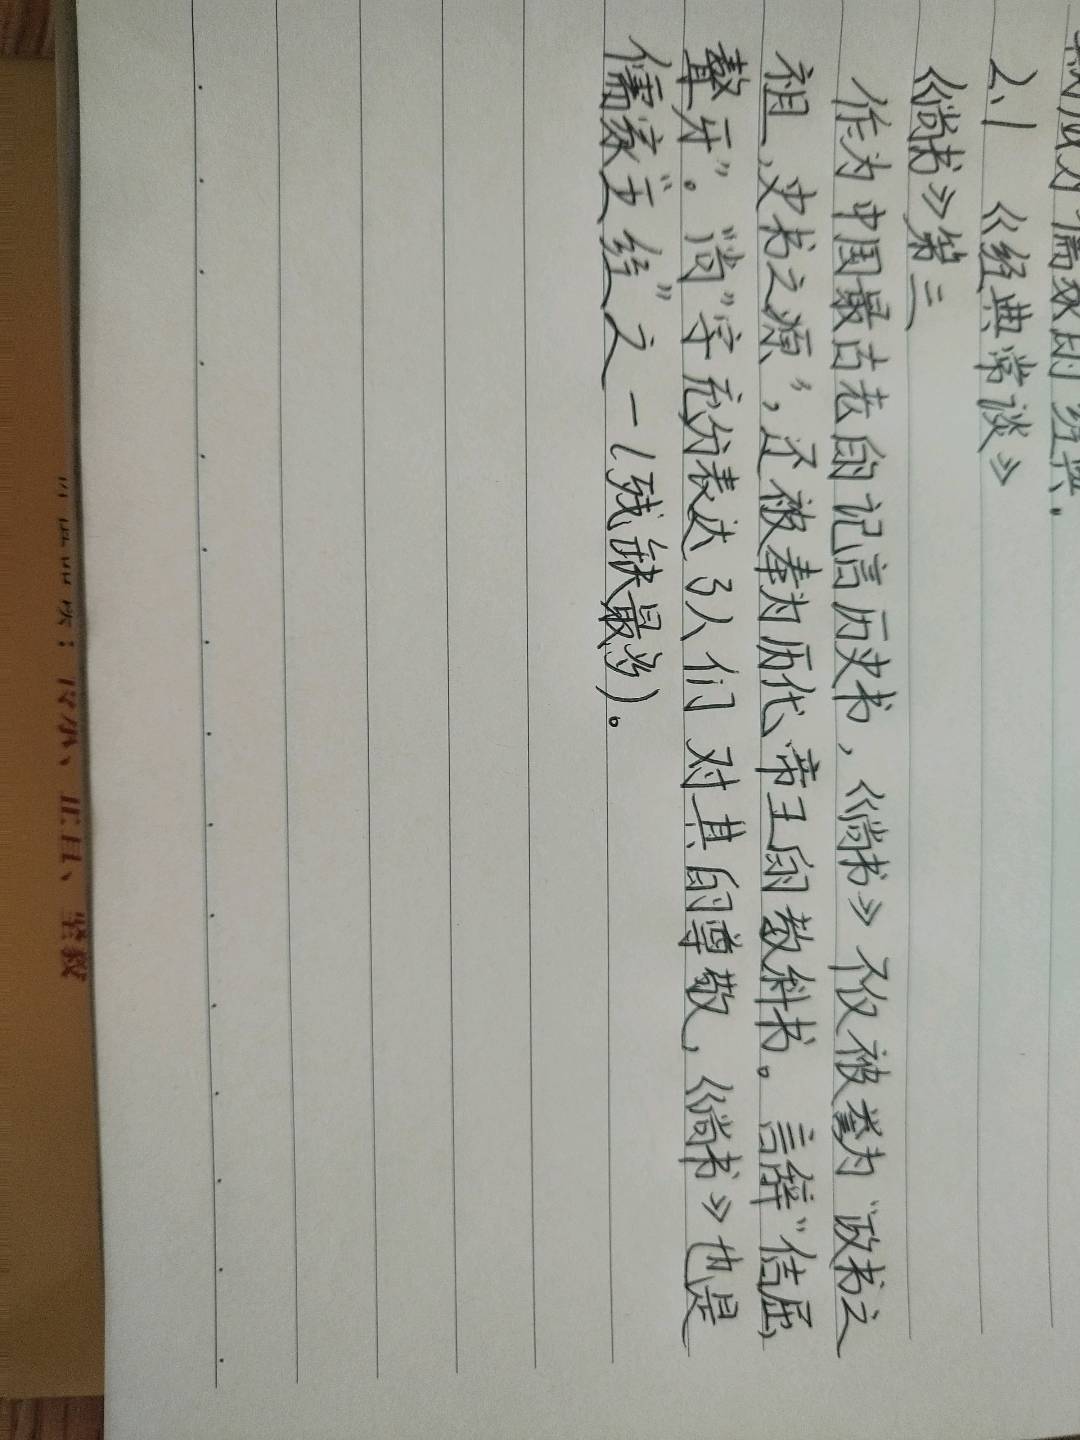 成为儒家的经典。
2.1 《经典常谈》
《尚书》第三
作为中国最古老的记言历史书，《尚书》不仅被誉为“政书之
祖，史书之源”，还被奉为历代帝王的教科书。言辞“佶屈
聱牙”。“尚”字充份表达了人们对其的尊敬，《尚书》也是
儒家“五经”之一（残缺最多）。